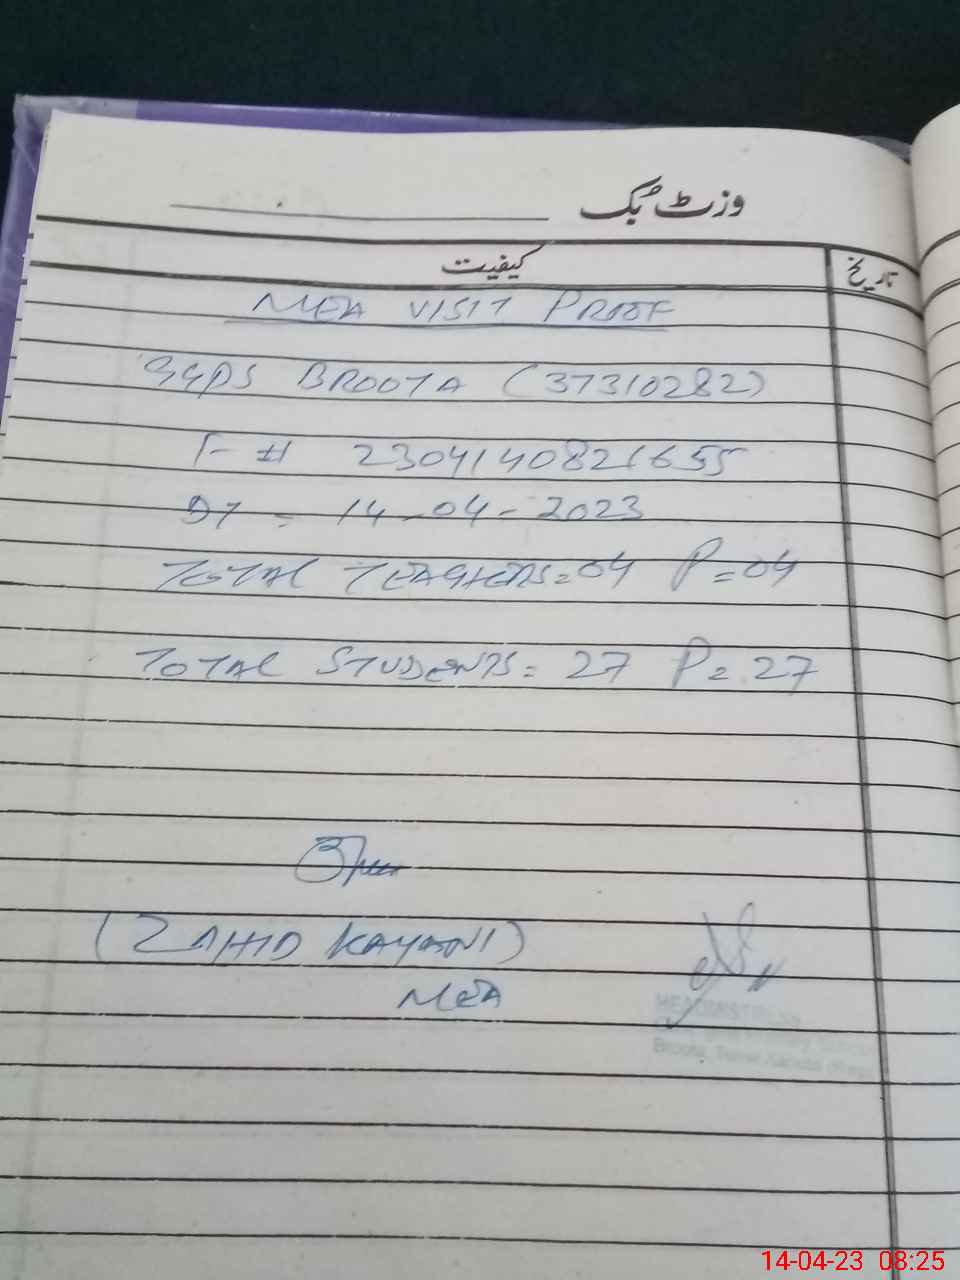 وزٹ بُک
کیفیت
تاریخ
MEA VISIT PROOF
GGPS BROOTA (37310282)
I-# 2304140821655
DT - 14-04-2023
TOTAL TEACHERS=04 P=04
TOTAL STUDENTS= 27 P=27
(ZAHID KAYANI)
MEA
HEADMISTRESS
Primary School
Broota, Kahuta
14-04-23 08:25